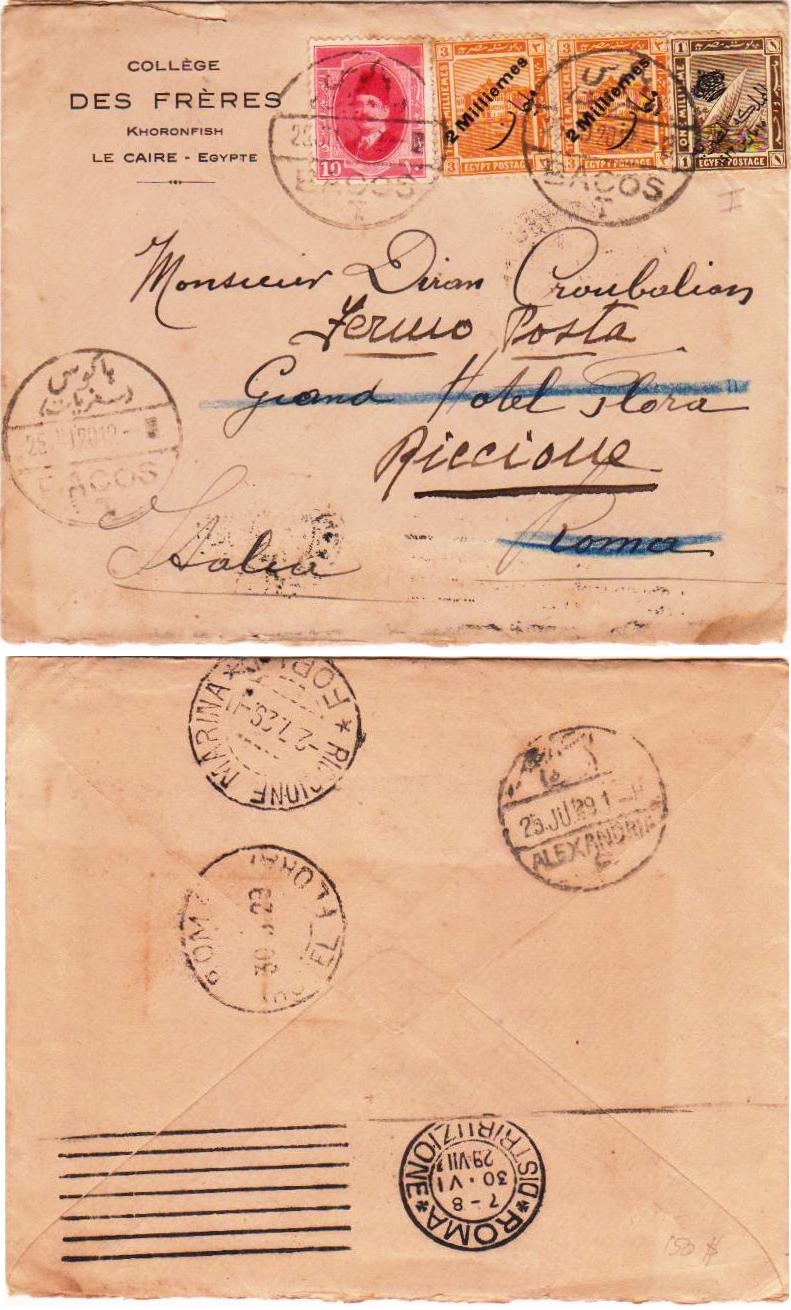 COLLÈGE
DES FRÈRES
KHORONFISH
LE CAIRE - EGYPTE
10
3 ٣
2 Milliemes
EGYPT POSTAGE
3 ٣
2 Milliemes
EGYPT POSTAGE
1 ١
ONE MILLIEME
EGYPT POSTAGE
BACOS
T
BACOS
T
I
Monsieur Diran Croubalian
Fermo Posta
Grand Hotel Flora
Riccione
Roma
Italia
باكوس
BACOS
T
* RICCIONE MARINA *
-2.7.29
25.JU.29.1 -P
ALEXANDRIA
E
30 29
* ROMA *
DISTRIBUZIONE
7-8
30.VI
29.VII
150